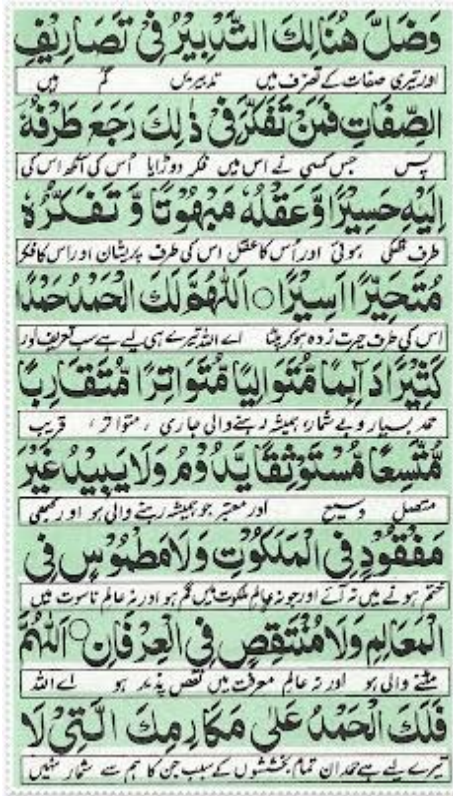 وَضَلَّ هُنَالِكَ التَّدْبِيْرُ فِيْ تَصَارِيْفِ
اور تیری صفات کے تصرف میں تدبیریں گم ہیں
الصِّفَاتِ فَمَنْ تَفَكَّرَ فِيْ ذٰلِكَ رَجَعَ طَرْفُهٗ
پس جس کسی نے اس میں فکر دوڑایا اُس کی آنکھ اس کی
اِلَيْهِ حَسِيْرًا وَّعَقْلُهٗ مَبْهُوْتًا وَّتَفَكُّرُهٗ
طرف تھکی ہوئی اور اُس کا عقل اس کی طرف پریشان اور اس کا فکر
مُتَحَيِّرًا اَسِيْرًا ○ اَللّٰهُمَّ لَكَ الْحَمْدُ حَمْدًا
اس کی طرف حیرت زدہ ہو کر پلٹا اے اللہ تیرے ہی لیے ہے سب تعریف اور
كَثِيْرًا دَآئِمًا مُّتَوَالِيًا مُّتَوَاتِرًا مُّتَقَارِبًا
حمد بسیار و بے شمار، ہمیشہ رہنے والی جاری ، متواتر ، قریب
مُّتَّسِعًا مُّسْتَوْثِقًا يَّدُوْمُ وَلَا يَبِيْدُ غَيْرَ
متصل وسیع اور معتبر جو ہمیشہ رہنے والی ہو اور کبھی
مَفْقُوْدٍ فِي الْمَلَكُوْتِ وَلَا مَطْمُوْسٍ فِي
ختم ہونے میں نہ آئے اور جو نہ عالم ملکوت میں گم ہو اور نہ عالم ناسوت میں
الْمَعَالِمِ وَلَا مُنْتَقِصٍ فِي الْعِرْفَانِ ○ اَللّٰهُمَّ
مٹنے والی ہو اور نہ عالم معرفت میں نقص پذیر ہو اے اللہ
فَلَكَ الْحَمْدُ عَلٰى مَكَارِمِكَ الَّتِيْ لَا
تیرے لیے ہے حمد ان تمام بخششوں کے سبب جن کا ہم سے شمار نہیں